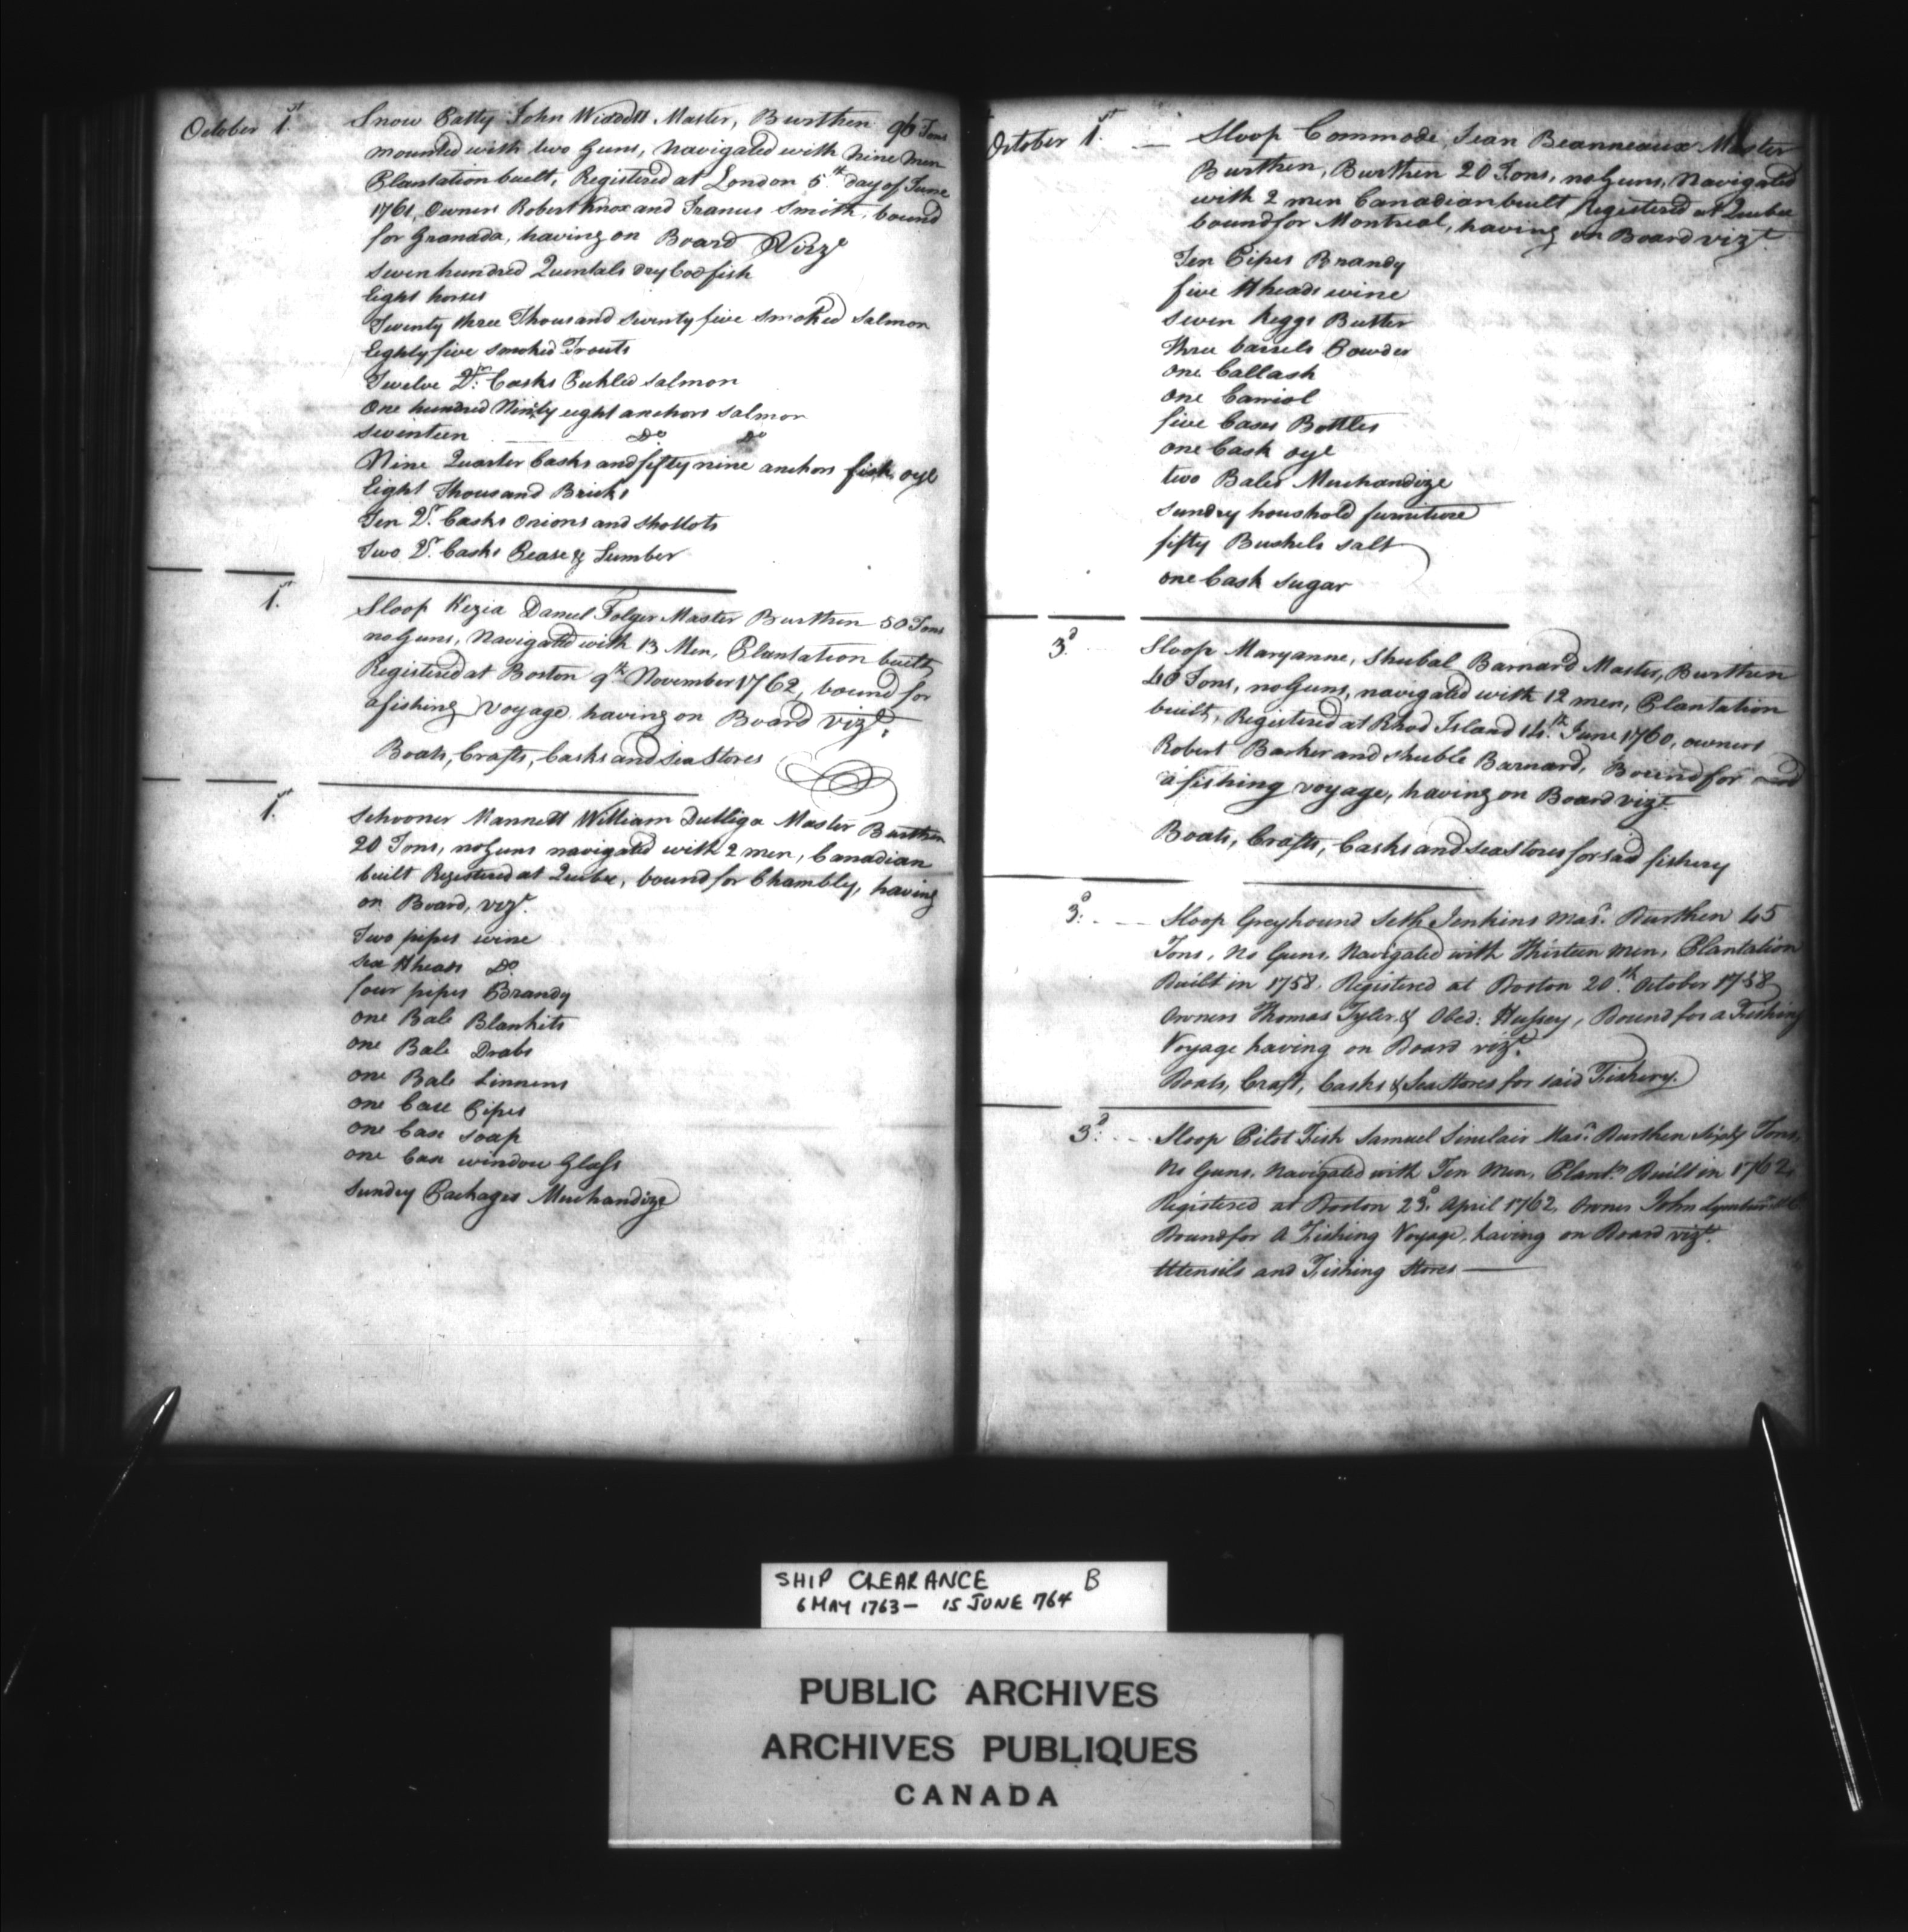 October 1.st Snow Patty John Widdett Master, Burthen 96 Tons
mounted with two Guns, Navigated with Nine Men
Plantation built, Registered at London 5.th day of June
1761, Owners Robert Knox and Francis Smith, bound
for Granada, having on Board Vizt
seven hundred Quentals dry Codfish
Eight horses
Twenty three Thousand seventy five smoked salmon
Eighty five smoked Trouts
Twelve Casks Pickled salmon
One hundred Ninety eight anchors salmon
seventeen Do Do
Nine Quarter Casks and fifty nine anchors fish oyl
Eight Thousand Bricks
Ten Qr. Casks onions and shollots
Two Qr. Casks Pease & Lumber
1.st Sloop Kezia Daniel Folger Master Burthen 50 Tons
no Guns, Navigated with 13 Men, Plantation built,
Registered at Boston 9th November 1762, bound for
a fishing Voyage having on Board vizt.
Boats, Crafts, Casks and Sea Stores
1.st Schooner Mannett William Master Burthen
20 Tons, no Guns navigated with 2 men, Canadian
built Registered at Quebec, bound for Chambly, having
on Board, vizt.
Two pipes wine
six Hheads Do
four pipes Brandy
one Bale Blankits
one Bale Drabs
one Bale Linnens
one Case Pipes
one Case soap
one Case window Glass
Sundry Packages Merchandize
October 1.st Sloop Commode, Jean Beanneaux Master
Burthen, Burthen 20 Tons, no Guns, Navigated
with 2 men Canadian built Registered at Quebec
bound for Montreal, having on Board vizt
Ten Pipes Brandy
five Hheads wine
seven Keggs Butter
three barrels Powder
one Callash
one Carriol
five Cases Bottles
one Cask oyl
two Bales Merchandize
sundry houshold furniture
fifty Bushels salt
one Cask sugar
3.d Sloop Maryanne, Shubal Barnard Master, Burthen
40 Tons, no Guns, navigated with 12 men, Plantation
built, Registered at Rhod Island 14.th June 1760, owners
Robert Barker and Shuble Barnard, Bound for and
a fishing voyage, having on Board vizt
Boats, Crafts, Casks and sea stores for said fishery
3.d Sloop Greyhound Seth Jenkins Masr. Burthen 45
Tons, No Guns, Navigated with Thirteen Men, Plantation
Built in 1758. Registered at Boston 20th. October 1758
Owners Thomas Tyler & Obed: Hussey, Bound for a Fishing
Voyage having on Board vizt.
Boats, Craft, Casks & Sea Stores for said Fishery.
3.d Sloop Pilot Fish Samuel Sinclair Masr. Burthen Sixty Tons,
No Guns. Navigated with Ten Men, Plantn. Built in 1762,
Registered at Boston 23.d April 1762, Owner John
Bound for A Fishing Voyage, having on Board vizt.
Utensils and Fishing Stores
SHIP CLEARANCE B
6 MAY 1763 - 15 JUNE 764
PUBLIC ARCHIVES
ARCHIVES PUBLIQUES
CANADA